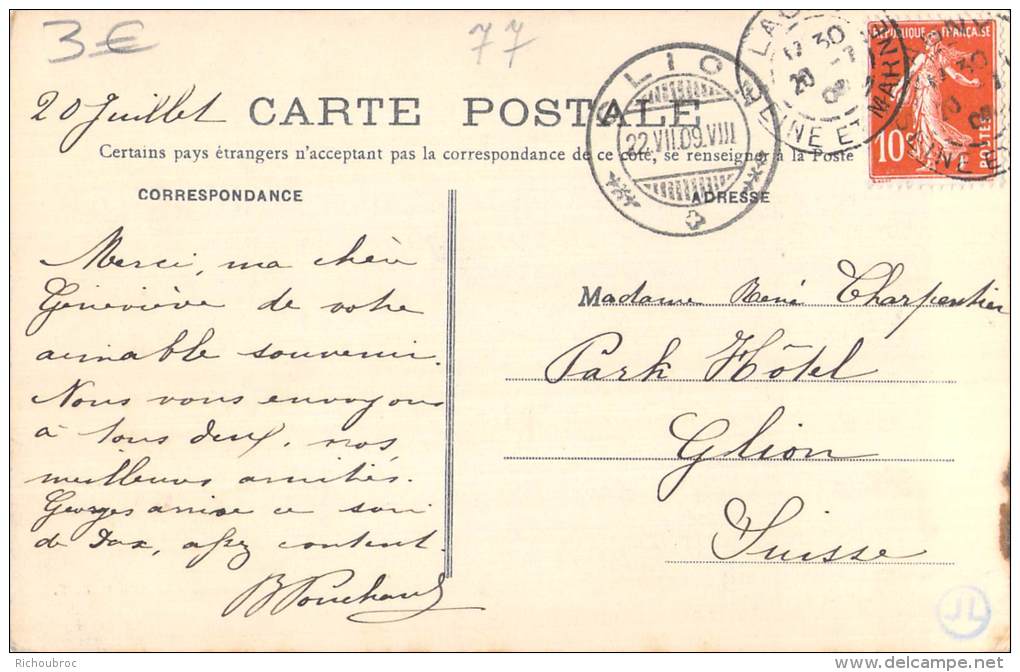 3€
77
20 Juillet
CARTE POSTALE
Certains pays étrangers n'acceptant pas la correspondance de ce côté, se renseigner à la Poste
CORRESPONDANCE
ADRESSE
GLION
22.VII.09.VIII
LAG
17 30
20
09
SEINE ET MARNE
RÉPUBLIQUE FRANÇAISE
10c
POSTES
Merci, ma chère
Geneviève de votre
aimable souvenir.
Nous vous envoyons
à tous deux, nos
meilleures amitiés.
Georges arrive ce soir
de Dax, assez content.
Madame René Charpentier
Park Hôtel
Glion
Suisse
JL
Richoubroc
www.delcampe.net